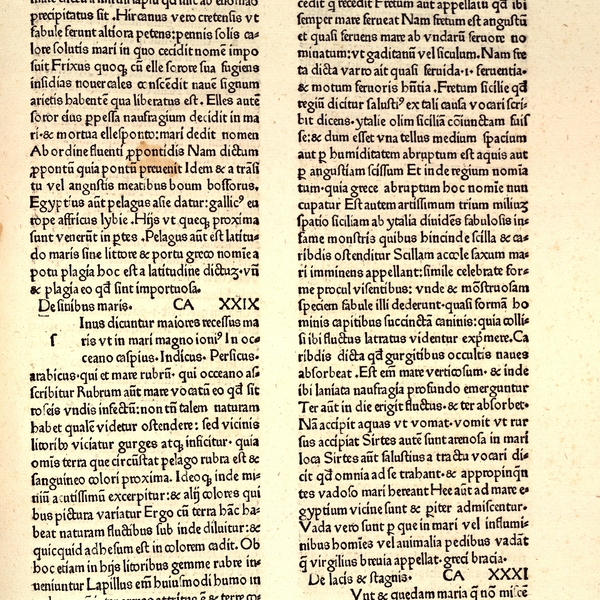 precipitatus sit .Hircanus vero cretensis vt
fabule ferunt altiora petens: pennis solis ca⸗
lore solutis mari in quo cecidit nomē impo
suit Frixus quoqꝫ cū elle sorore sua fugiens
insidias nouercales cōscēdit nauē signum
arietis habentē qua liberatus est . Elles autē
soror eius ꝑpessa naufragium decidit in ma
ri⸗& mortua ellesponto: mari dedit nomen
Ab ordine fluenti ꝓpontidis Nam dictum
ꝓpontū quia pontū preuenit Idem & a trāsi
tu vel angustis meatibus boum bosforus.
Egyptius aūt pelagus asie datur: gallicꝰ eu
rope affricus lybie .Hijs vt queqꝫ proxima
sunt venerūt in ꝑtes .Pelagus aūt est latitu⸗
do maris sine littore & portu greco nomīe a
potu plagia hoc est a latitudine dictuꝫ·vñ
& plagia eo qd sint importuosa.
De sinibus maris. CA XXIX
Inus dicuntur maiores recessus ma
ſ ris vt in mari magno ioniꝰ In oc⸗
ceano caspius. Indicus. Persicus.
arabicus·qui et mare rubrū· qui occeano as⸗
scribitur Rubrum aūt mare vocatū eo qd sit
roseis vndis infectū: non tn̄ talem naturam
habet qualē videtur ostendere: sed vicinis
litoribꝰ viciatur gurges atqꝫ inficitur· quia
omīs terra que circūstat pelago rubra est &
sanguineo colori proxima. Ideoqꝫ inde mi⸗
niū acutissimū excerpitur: & alij colores qui
bus pictura variatur Ergo cū terra hāc ha⸗
beat naturam fluctibus sub inde diluitur: &
quicquid adhesum est in colorem cadit. Ob
hoc etiam in hijs litoribus gemme rubre in⸗
ueniuntur Lapillus em̄ huiusmodi humo in
cedit ꝙ recedit Fretum aūt appellatū qd ibi
semper mare serueat Nam fretum est angustū
et quasi feruens mare ab vndarū feruore no
minatum: vt gaditanū vel siculum. Nam fre
ta dicta varro ait quasi feruida·i· feruentia⸗
& motum feruoris hn̄tia .Fretum sicilie qd
regiū dicitur salustiꝰ ex tali causa vocari scri⸗
bit dicens· ytalie olim siciliā cōiunctam suis
se: & dum esset vna tellus medium spacium
aut ꝑ humiditatem abruptum est aquis aut
ꝑ angustiam scissum Et inde regium nomīa
tum· quia grece abruptum hoc nomīe nun
cupatur Est autem artissimum trium miliuꝫ
spatio siciliam ab ytalia diuidēs fabulosis in⸗
fame monstris quibus hinc inde scilla & ca⸗
ribdis ostenditur Scillam accole saxum ma⸗
ri imminens appellant: simile celebrate for⸗
me procul visentibus: vnde & mōstruosam
speciem fabule illi dederunt· quasi formā ho
minis capitibus succinctā caninis: quia colli⸗
si ibi fluctus latratus videntur exp̄mere. Ca
ribdis dicta qd gurgitibus occultis naues
absorbeat .Est em̄ mare verticosum· & inde
ibi laniata naufragia profundo emerguntur
Ter aūt in die erigit fluctus·& ter absorbet·
Nā accipit aquas vt vomat· vomit vt rur
sus accipiat Sirtes autē sunt arenosa in mari
loca Sirtes aūt salustius a tractu vocari di⸗
cit qd omnia ad se trahant·& appropinqn̄
tes vadoso mari hereant Hee aūt ad mare e⸗
gyptium vicine sunt & ꝑiter admiscentur.
Vada vero sunt ꝑ que in mari vel flumini⸗
nibus homīes vel animalia pedibus vadāt
q̄ virgilius breuia appellat· greci bracia.
De lacis & stagnis. CA XXXI